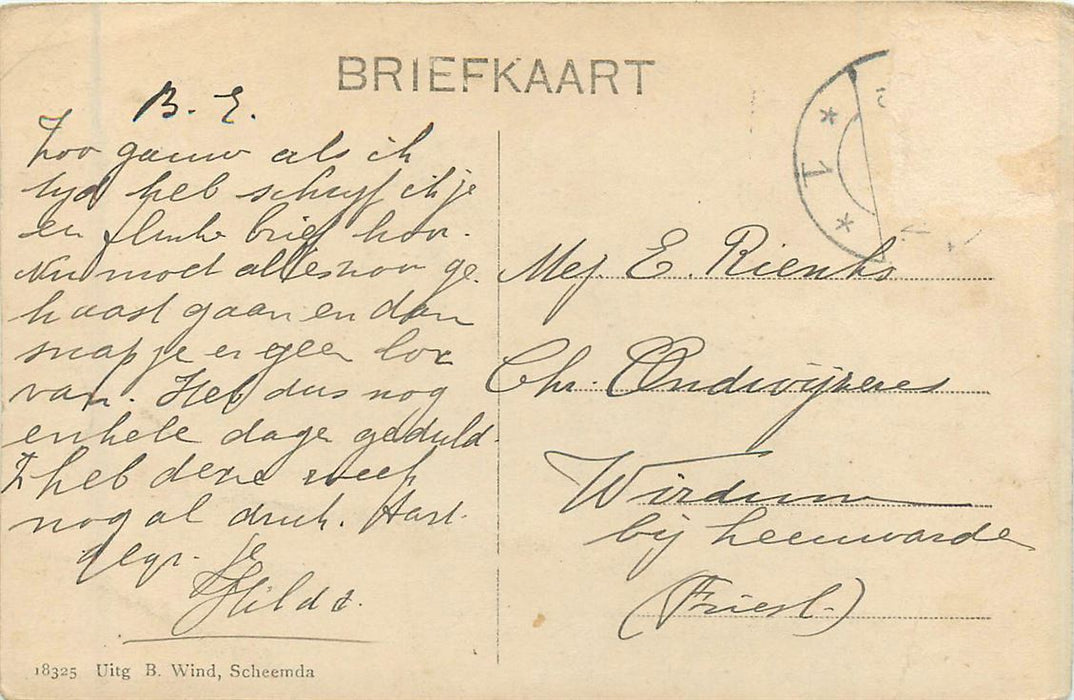 BRIEFKAART
B. E.
Zoo gauw als ik
tyd heb schryf ik je
en flinke brief hoor.
Nu moet alles zoo ge
haast gaan en dan
snap je er geen
van. Heb dus nog
enkele dage geduld.
'k heb deze week
nog al druk. Hart.
gegr. je
Hilda.
Mej E. Rienks
Chr. Onderwijzeres
Wirdum
bij Leeuwarde
(Friesl.)
1
18325 Uitg B. Wind, Scheemda